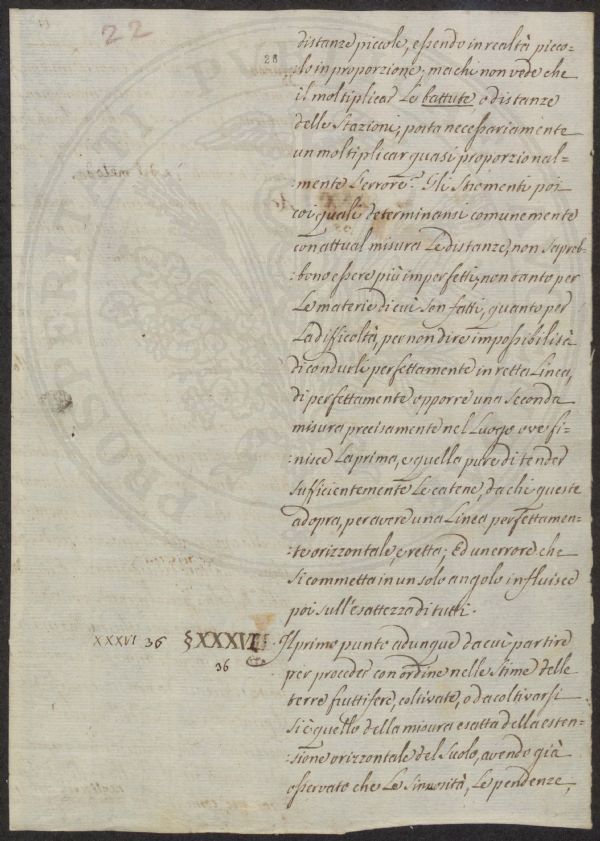 22
28
distanze piccole, essendo in realtà picco-
:lo in proporzione; ma chi non vede che
il moltiplicar le battute, o distanze
delle Stazioni, porta necessariamente
un moltiplicar quasi proporzional=
:mente l'errore? Gli Stromenti poi
coi quali determinansi comunemente
con attual misura le distanze, non saprob-
bono essere più imperfetti, non tanto per
le materie di cui son fatti, quanto per
la difficoltà, per non dire impossibilità
di condurli perfettamente in retta Linea,
di perfettamente opporre una seconda
misura precisamente nel Luogo ove fi-
:nisce la prima, e quella pure di tender
sufficientemente le catene, da chi queste
adopra, per avere una Linea perfettamen-
:te orizzontale, e retta; Ed un errore che
si commetta in un solo angolo influisce
poi sull'esattezza di tutti.
XXXVI 36 §XXXVI Il primo punto adunque da cui partire
36 per proceder con ordine nelle Stime delle
terre fruttifere, coltivate, o da coltivarsi
si è quello della misura esatta della esten-
:sione orizzontale del Suolo, avendo già
osservato che le Sinuosità, le pendenze,
PROSPERITATI PU